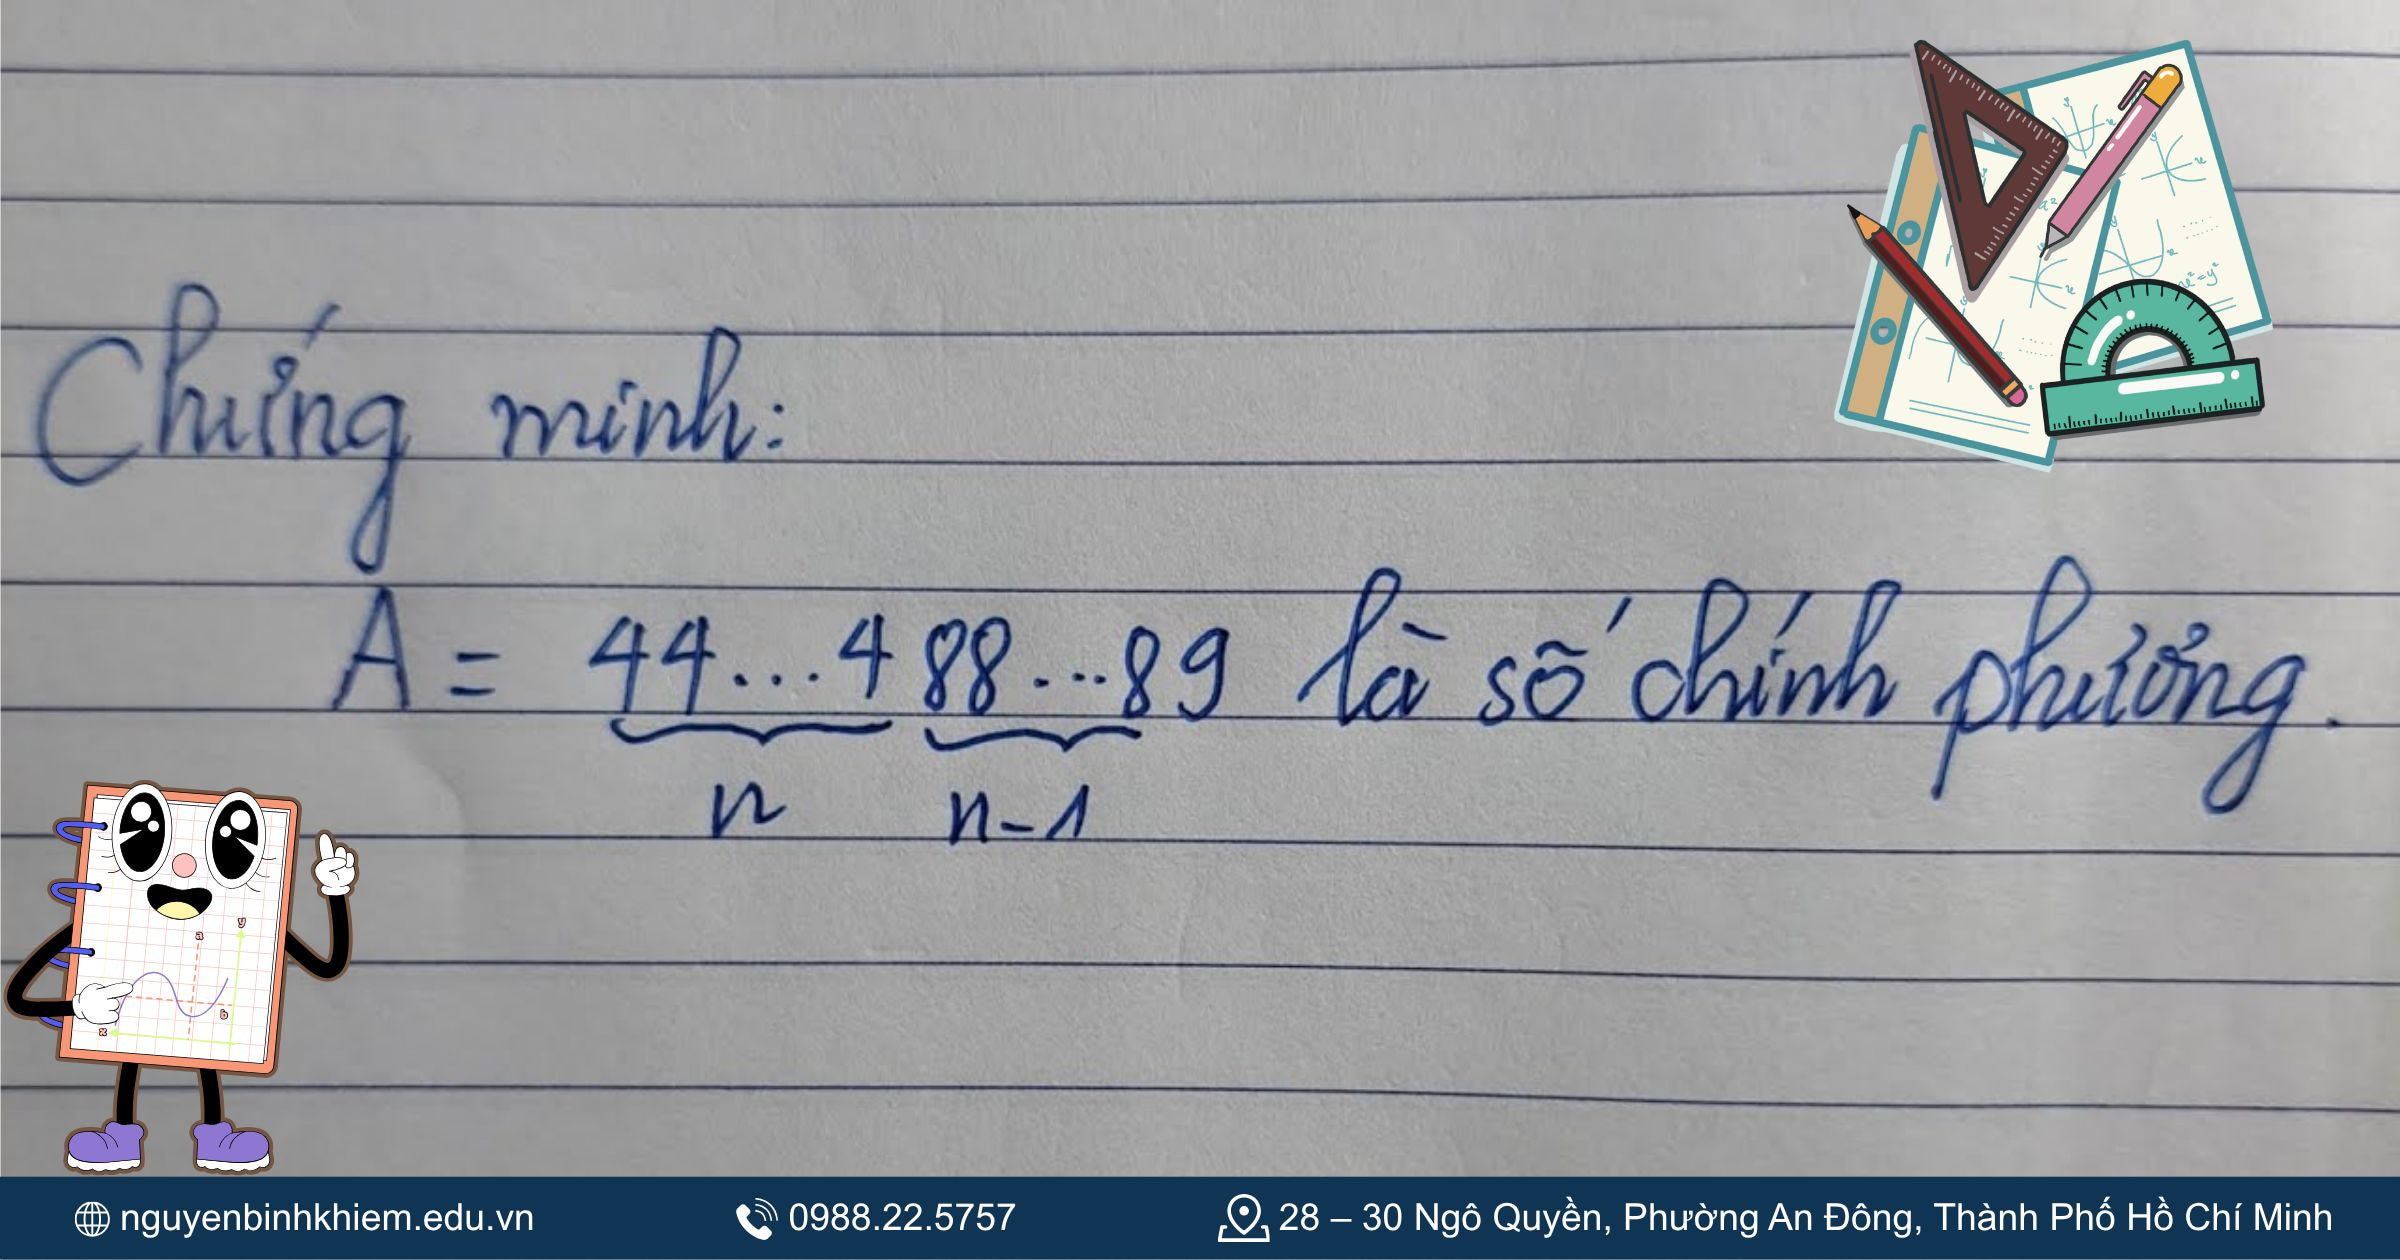 Chứng minh:
A = 44...4 88...89 là số chính phương.
n n-1
nguyenbinhkhiem.edu.vn 0988.22.5757 28 – 30 Ngô Quyền, Phường An Đông, Thành Phố Hồ Chí Minh